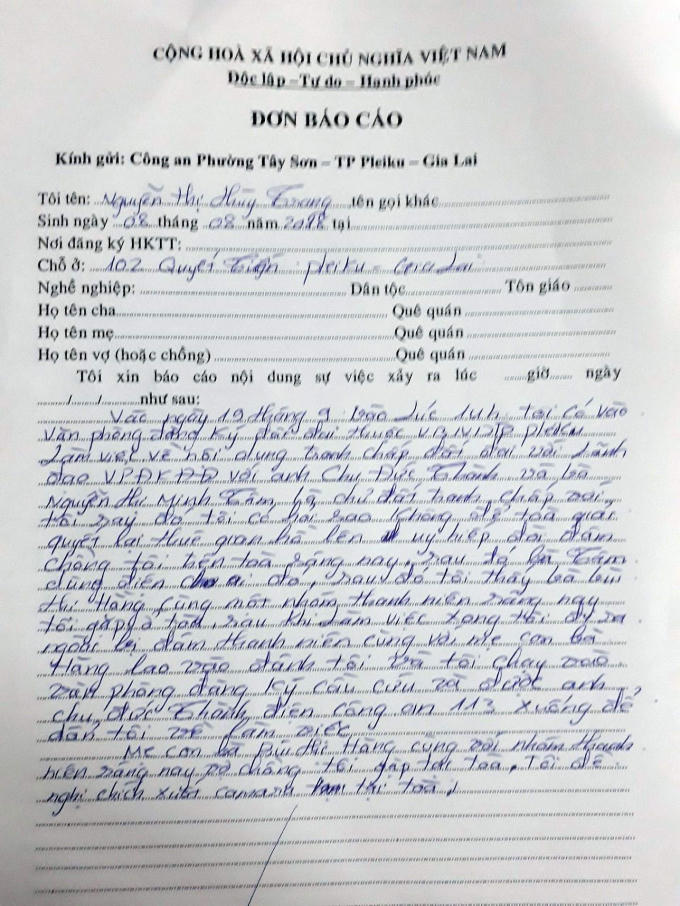 CỘNG HOÀ XÃ HỘI CHỦ NGHĨA VIỆT NAM
Độc lập – Tự do – Hạnh phúc
ĐƠN BÁO CÁO
Kính gửi: Công an Phường Tây Sơn – TP Pleiku – Gia Lai
Tôi tên: Nguyễn Thị Thùy Trang tên gọi khác
Sinh ngày 08 tháng 08 năm tại
Nơi đăng ký HKTT:
Chỗ ở: 102 Quyết Tiến pleiku – Gia Lai
Nghề nghiệp: Dân tộc Tôn giáo
Họ tên cha Quê quán
Họ tên mẹ Quê quán
Họ tên vợ (hoặc chồng) Quê quán
Tôi xin báo cáo nội dung sự việc xảy ra lúc giờ ngày
/ / như sau:
Vào ngày 19 tháng 9 vào lúc tôi có vào
văn phòng đăng ký đất đai thuộc pleiku
Làm việc về nội dung tranh chấp đất đai với Lãnh
đạo với anh Chu Đức Thành và bà
Nguyễn Thị Minh Tâm, bà chủ đất tranh chấp với
tôi do tôi có hỏi sao không để toà giải
quyết lại thuê gian hồ lên uy hiếp đòi đấm
chồng tôi bên toà sáng nay, sau đó bà Tâm
cũng điện cho ai đó, sau đó tôi thấy bà Bùi
thị Hằng cùng một nhóm thanh niên sáng nay
tôi gặp ở toà, sau khi làm việc xong tôi đi ra
ngoài bị đám thanh niên cùng với mẹ con bà
Hằng lao vào đánh tôi và tôi chạy vào
văn phòng đăng ký cầu cứu và được anh
chu đức Thành điện công an 113 xuống để
dẫn tôi về làm việc
Mẹ con bà Bùi thị Hằng cùng với nhóm thanh
niên sáng nay vợ chồng tôi gặp tại toà, Tôi đề
nghị chích xuất camara tại toà,